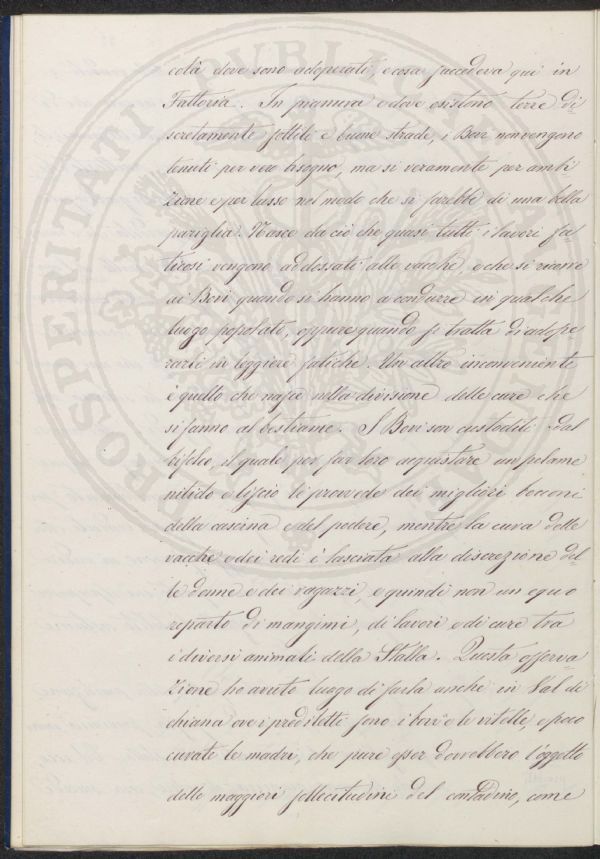 colà dove sono adoperati, e cosa succedeva qui in
Fattoria. In pianura e dove esistono terre di-
scretamente sottili e buone strade, i Bovi non vengono
tenuti per vero bisogno, ma si veramente per ambi
zione e per lusso nel modo che si farebbe di una bella
pariglia. Nasce da ciò che quasi tutti i lavori fa-
ticosi vengono addossati alle vacche, e che si ricorre
ai Bovi quando si hanno a condurre in qualche
luogo popolato, oppure quando si tratta di adope
rarli in leggiere fatiche. Un altro inconveniente
è quello che nasce nella divisione delle cure che
si fanno al bestiame. I Bovi son custoditi dal
bifolco, il quale per far loro acquistare un pelame
nitido e liscio li provvede dei migliori bocconi
della cascina e del podere, mentre la cura delle
vacche e dei redi è lasciata alla discrezione del-
le donne e dei ragazzi, e quindi non un equo
reparto di mangimi, di lavori e di cure tra
i diversi animali della Stalla. Questa osserva
zione ho avuto luogo di farla anche in Val di
chiana ove i prediletti sono i bovi e le vitelle, e poco
curate le madri, che pure esser dovrebbero l'oggetto
delle maggiori sollecitudini del contadino, come
PROSPERITATI PVBLICAE AVGENDAE